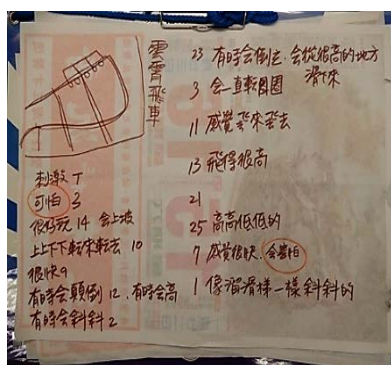 雲霄飛車
刺激 丁
可怕 3
很好玩 14 会上坡
上上下下転來転去 10
很快 9
有時会顛倒 12、有時会高
有時会斜斜 2
23 有時会倒走、会從很高的地方
滑下來
3 会一直転圈圈
11 感覺飛來飛去
13 飛得很高
21
25 高高低低的
7 感覺很快、会害怕
1 像溜滑梯一樣斜斜的